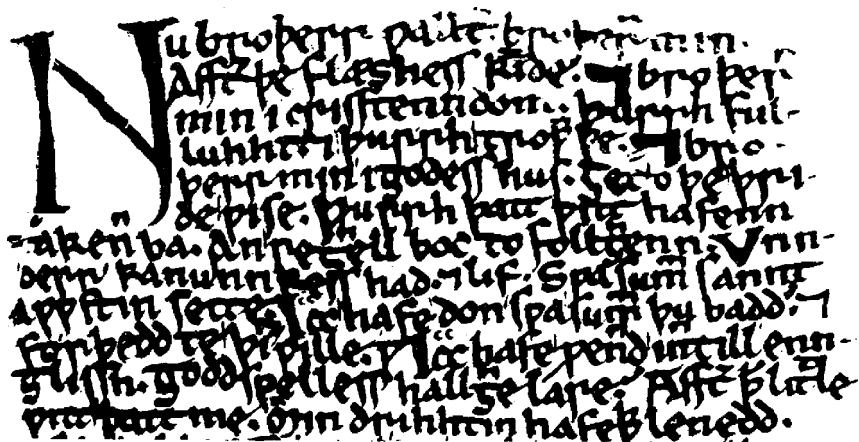 Nu broþerr wallt͛. broþerr min.
Afft͛ þe flæshess kĩde. ⁊ broþerr
min i crisstenndom. þurrh ful-
luhht ⁊ þurrh trowwþe. ⁊ bro-
þerr min i godess hus. ȝet o þe þri-
de wise. þurrh þatt witt hafenn
takeñ ba. An reȝhell boc to follȝhenn. Unn-
derr kanunnkess had. ⁊ lif. Swa sum̃ sannt
awwstin sette. Icc hafe don swa sum̃ þu badd. ⁊
forþedd te þin wille. Icc hafe wennd inntill enn-
glissh. goddspelless hallȝhe lare. Afft͛ þatt litle
witt þatt me. min drihhtin hafeþþ lenedd.